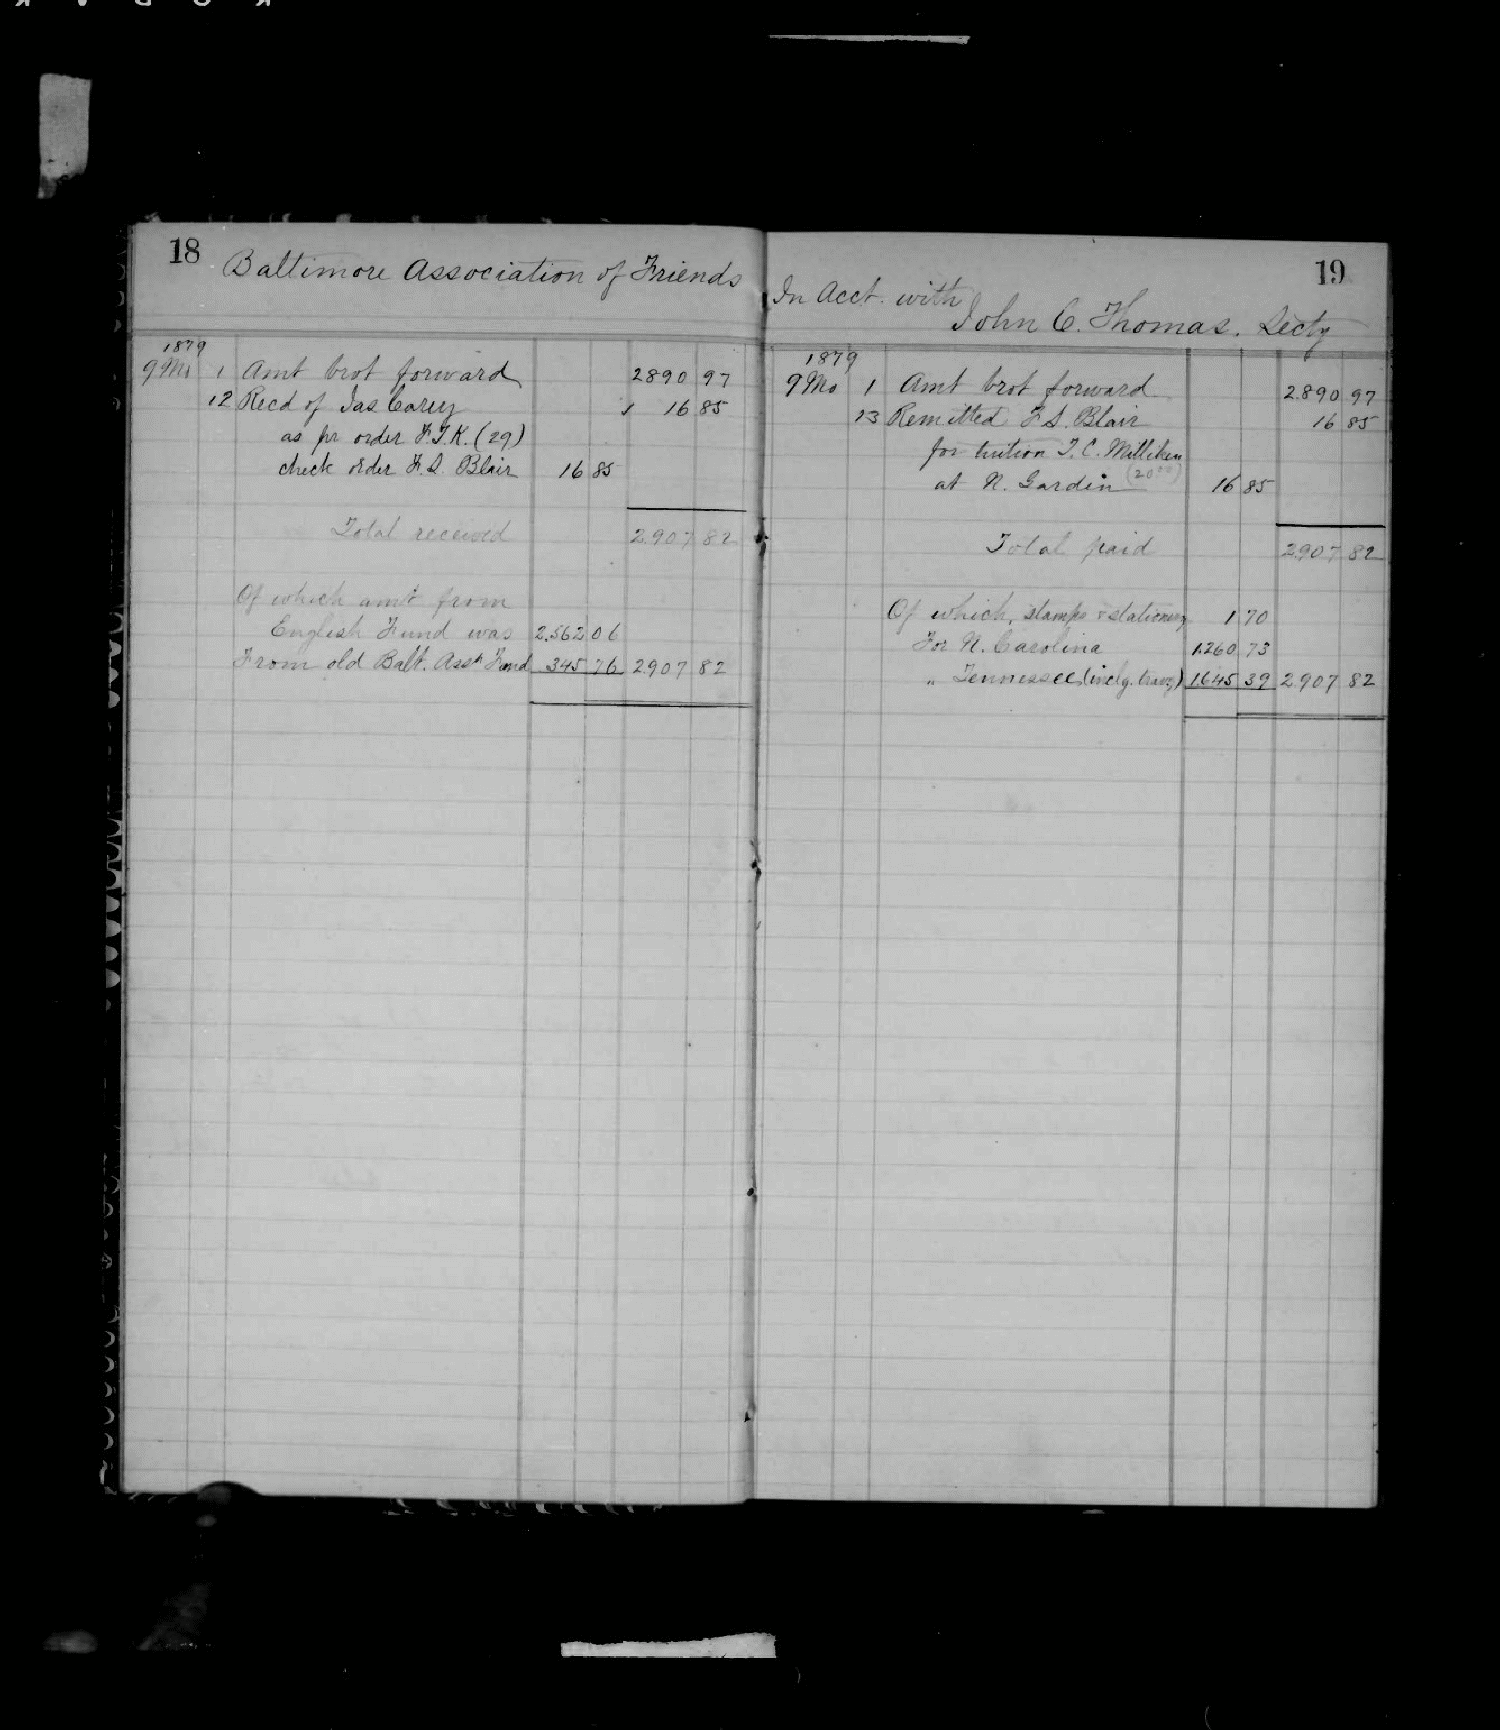 18
Baltimore Association of Friends
1879
9 Mo 1 Amt brot forward 2890 97
12 Recd of Jas Carey 1 16 85
as pr order F.T.K. (29)
check order F.S. Blair 16 85
Total received 2907 82
Of which amt from
English Fund was 2,562 06
From old Balt. Assn Fund 345 76 2907 82
19
In Acct. with
John C. Thomas. Secty
1879
9 Mo 1 Amt brot forward 2890 97
13 Remitted F.S. Blair 16 85
for tuition T.C. Milliken
at N. Garden (20 00) 16 85
Total paid 2907 82
Of which, stamps & stationery 1 70
For N. Carolina 1260 73
" Tennessee (inclg. travg) 1645 39 2907 82